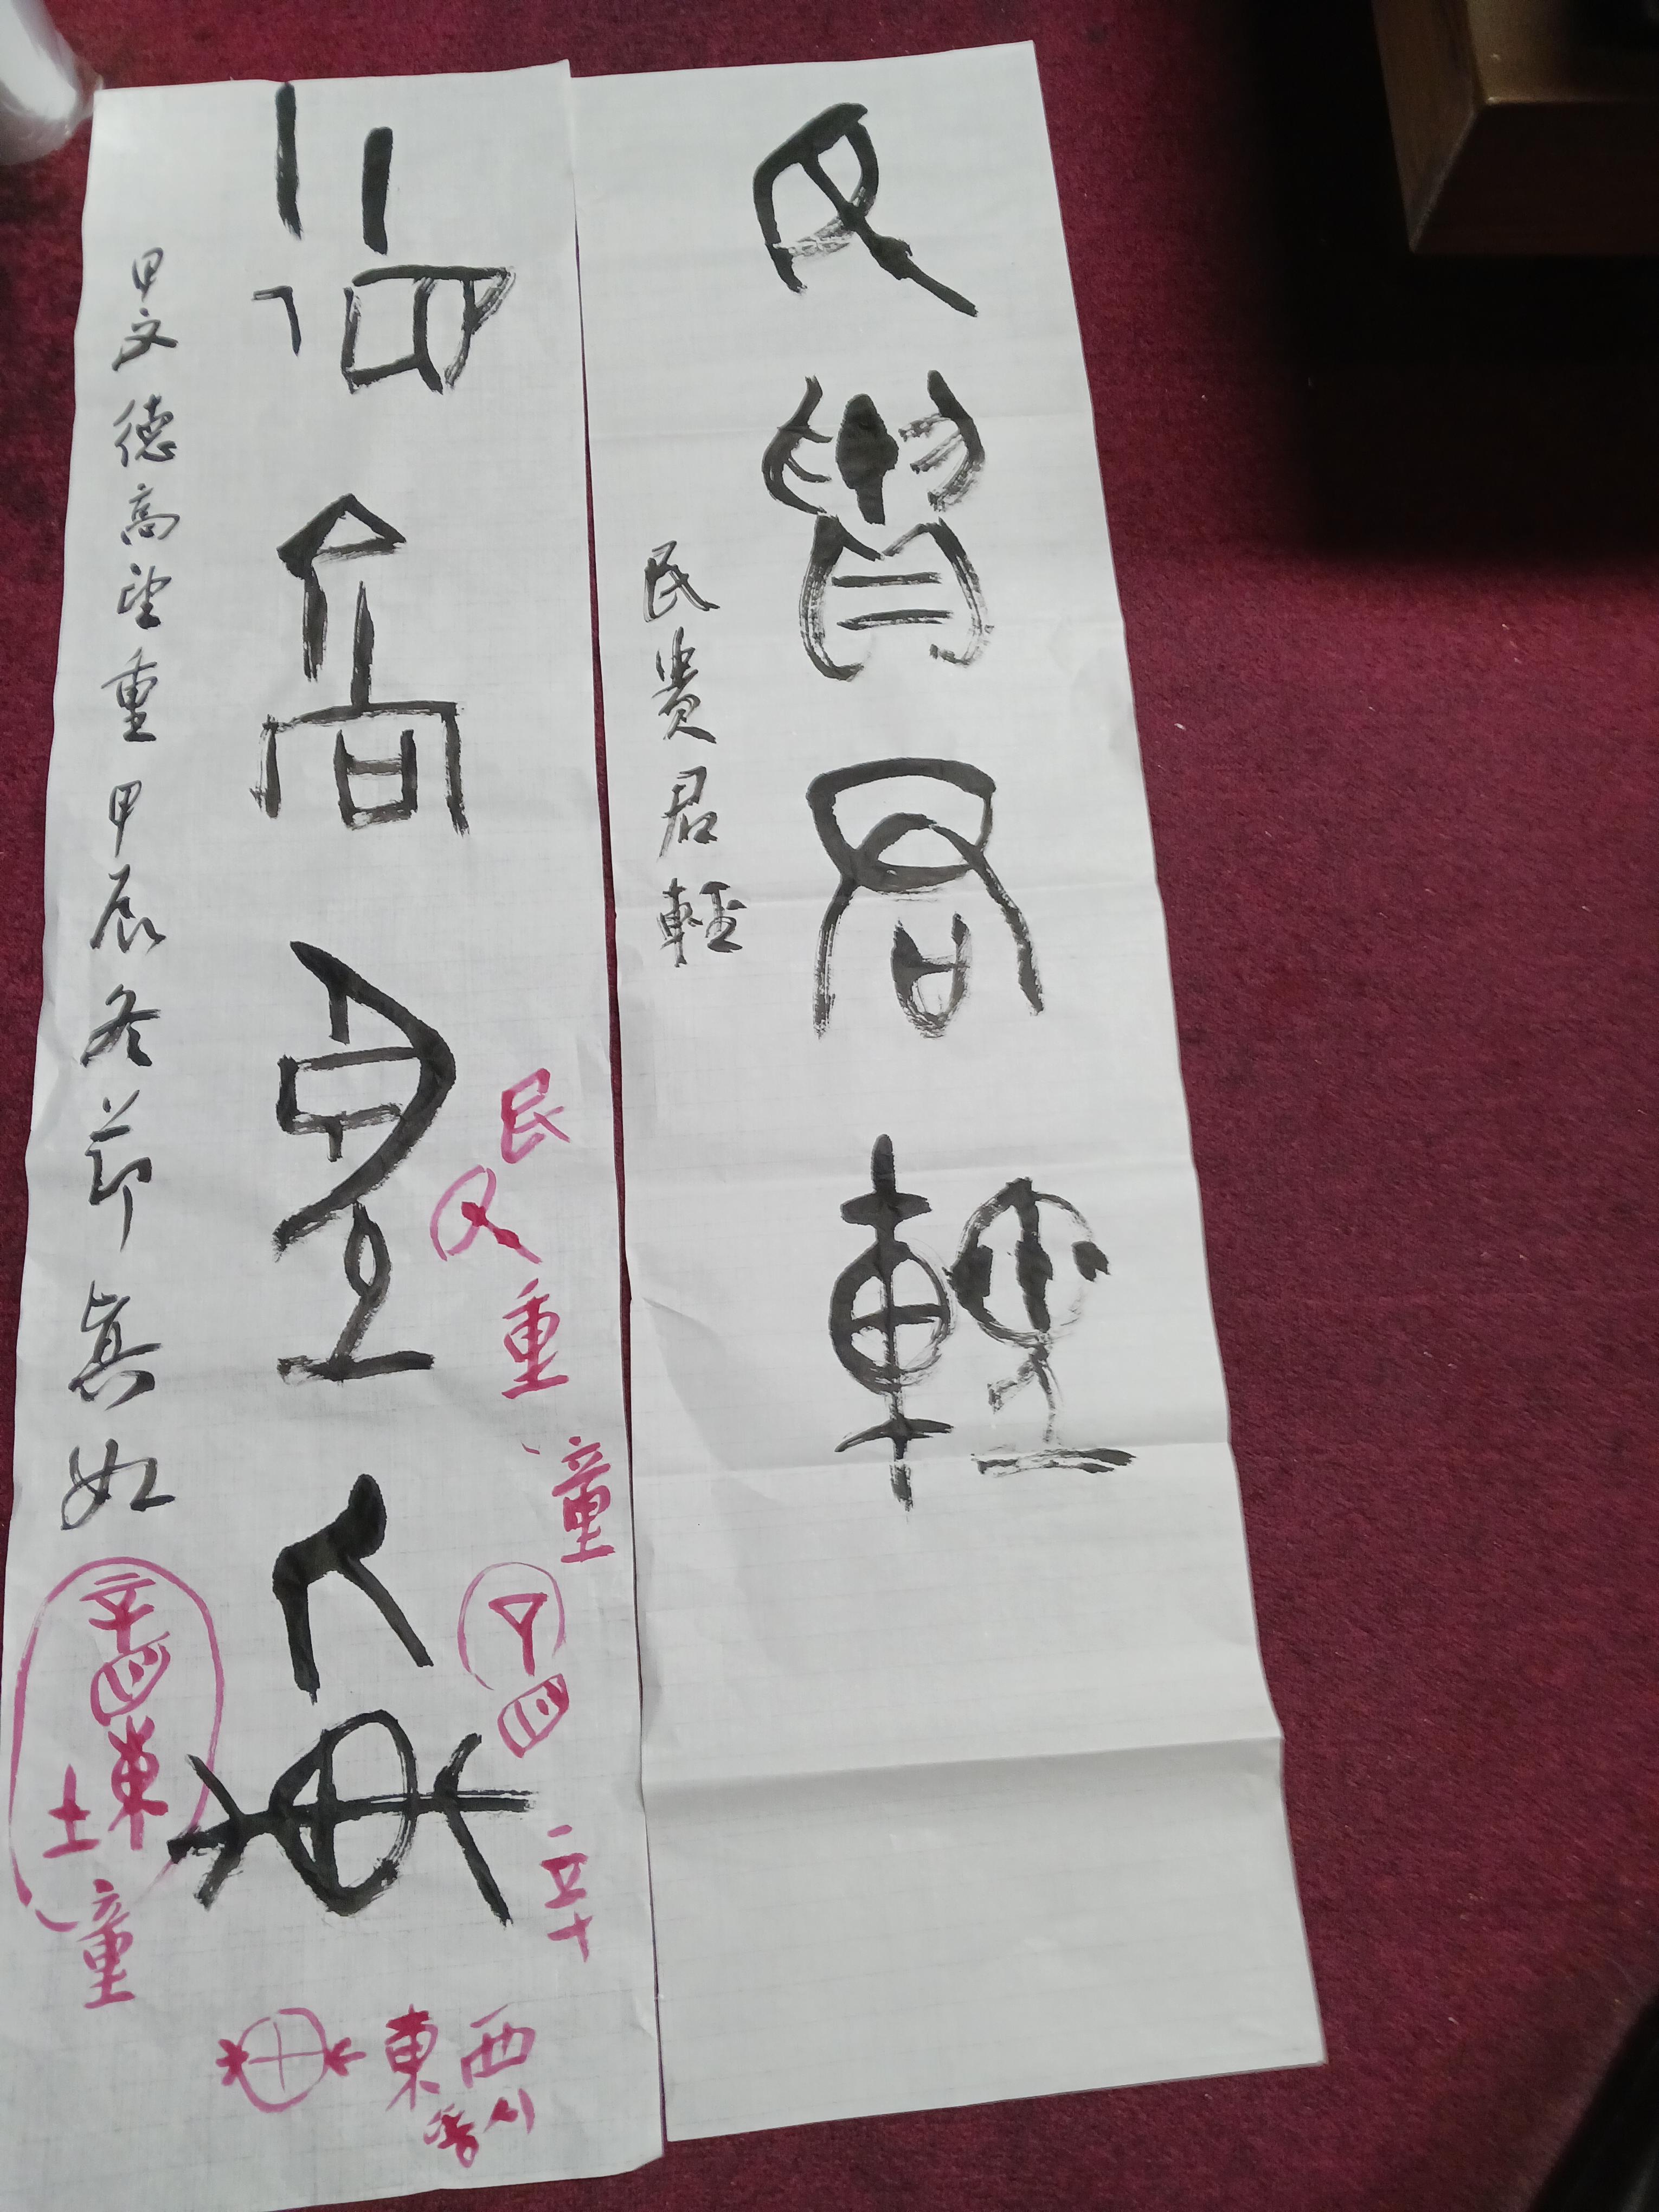 民貴君輕
民貴君輕
德高望重
甲文 德高望重 甲辰冬節 真如
民
重
童
辛
四
立十
辛四東土
童
東西
동시